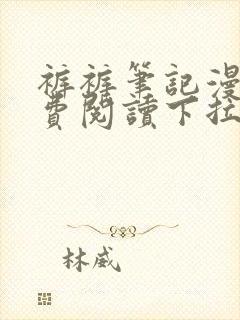 裤裤筆記漫
費閱讀下拉
林威